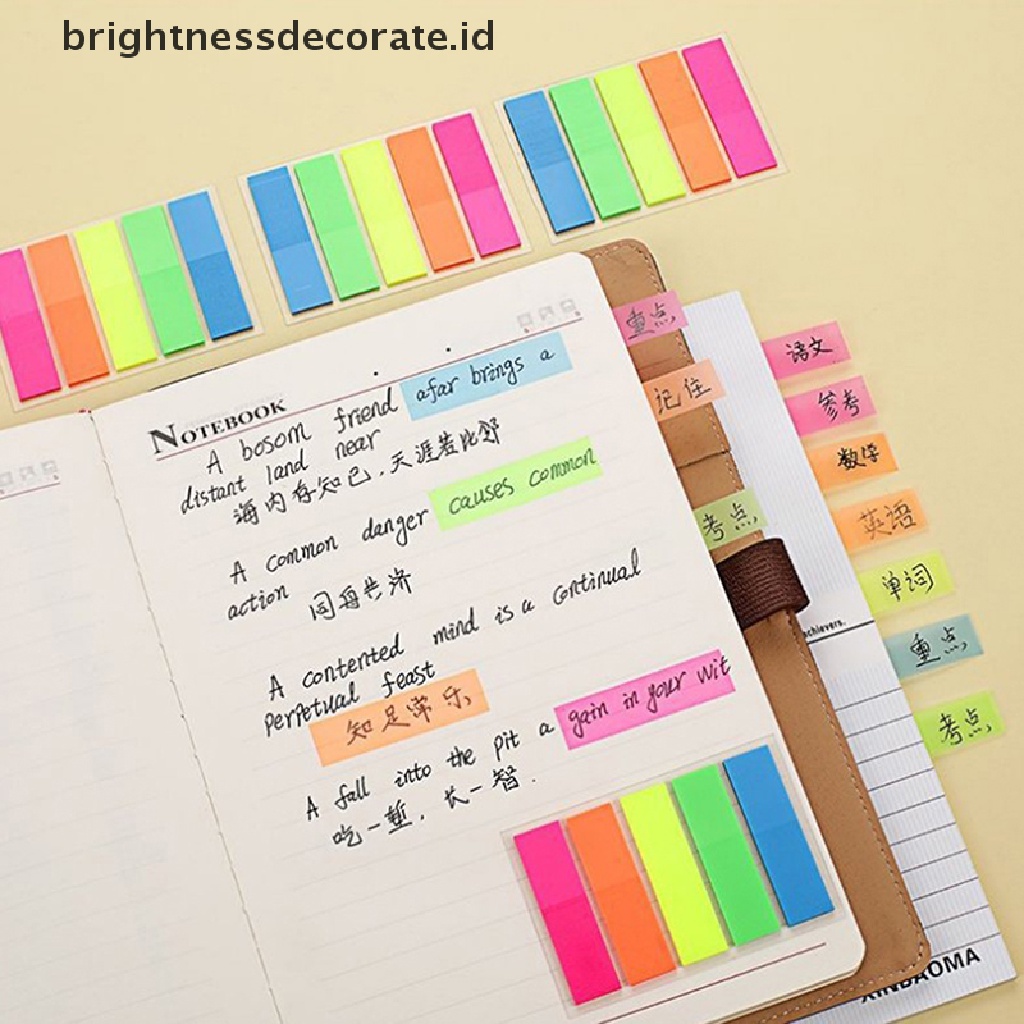 brightnessdecorate.id
NOTEBOOK
A bosom friend afar brings a
distant land near
海内存知己.天涯若比邻
A common danger causes common
action 同舟共济
A contented mind is a continual
perpetual feast
知足常乐
A fall into the pit a gain in your wit
吃一堑,长一智.
重点
记住
考点
语文
参考
数学
英语
单词
重点
考点
achievers.
XINDAOMA